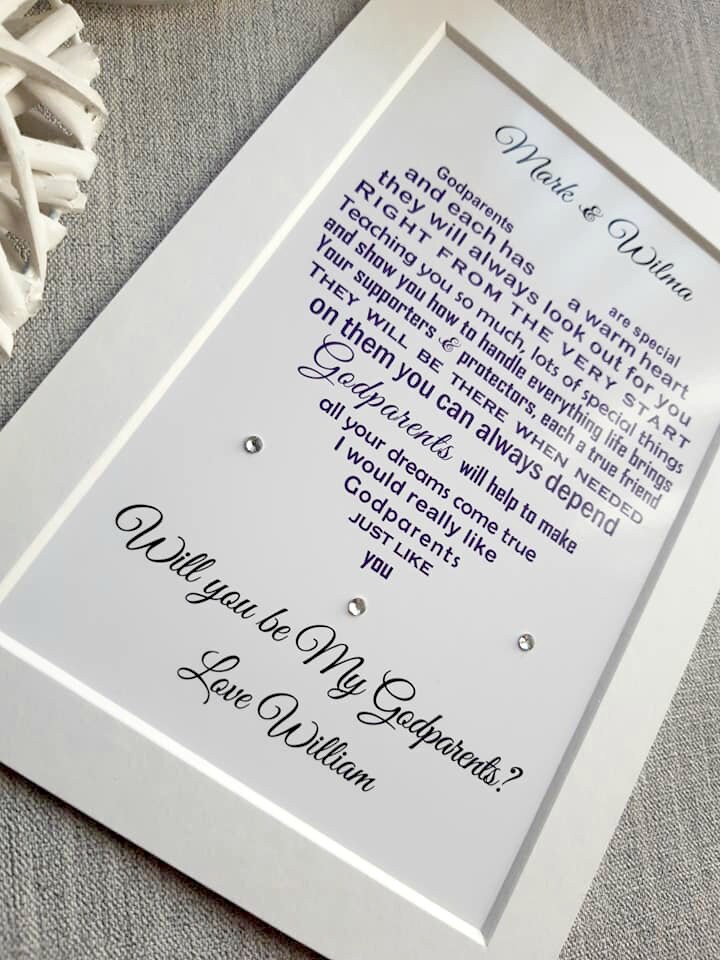 Mark & Wilma
Godparents are special
and each has a warm heart
they will always look out for you
RIGHT FROM THE VERY START
Teaching you so much, lots of special things
and show you how to handle everything life brings
Your supporters & protectors, each a true friend
THEY WILL BE THERE WHEN NEEDED
on them you can always depend
Godparents will help to make
all your dreams come true
I would really like
Godparents
JUST LIKE
you
Will you be My Godparents?
Love William